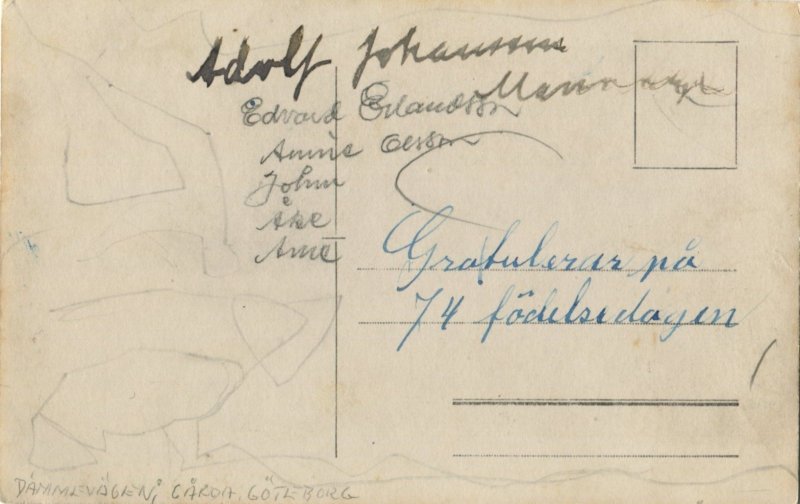 Adolf Johansson
Edvard Erlandsson
Annie Olsson
John
Åke
Arne
Gratulerar på
74 födelsedagen
DÄMMEVÄGEN, GÅRDA, GÖTEBORG